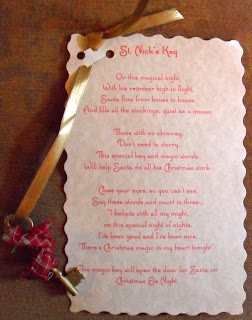 St. Nick's Key
On this magical night,
With his reindeer high in flight,
Santa flies from house to house,
And fills all the stockings, quiet as a mouse.
Those with no chimney,
Don't need to worry,
This special key and magic words,
Will help Santa do all his Christmas work.
Close your eyes, so you can see,
Say these words and count to three...
"I believe with all my might,
on this special night of nights,
I've been good and I've been nice,
There's Christmas magic in my heart tonight"
This magic key will open the door for Santa on
Christmas Eve Night.